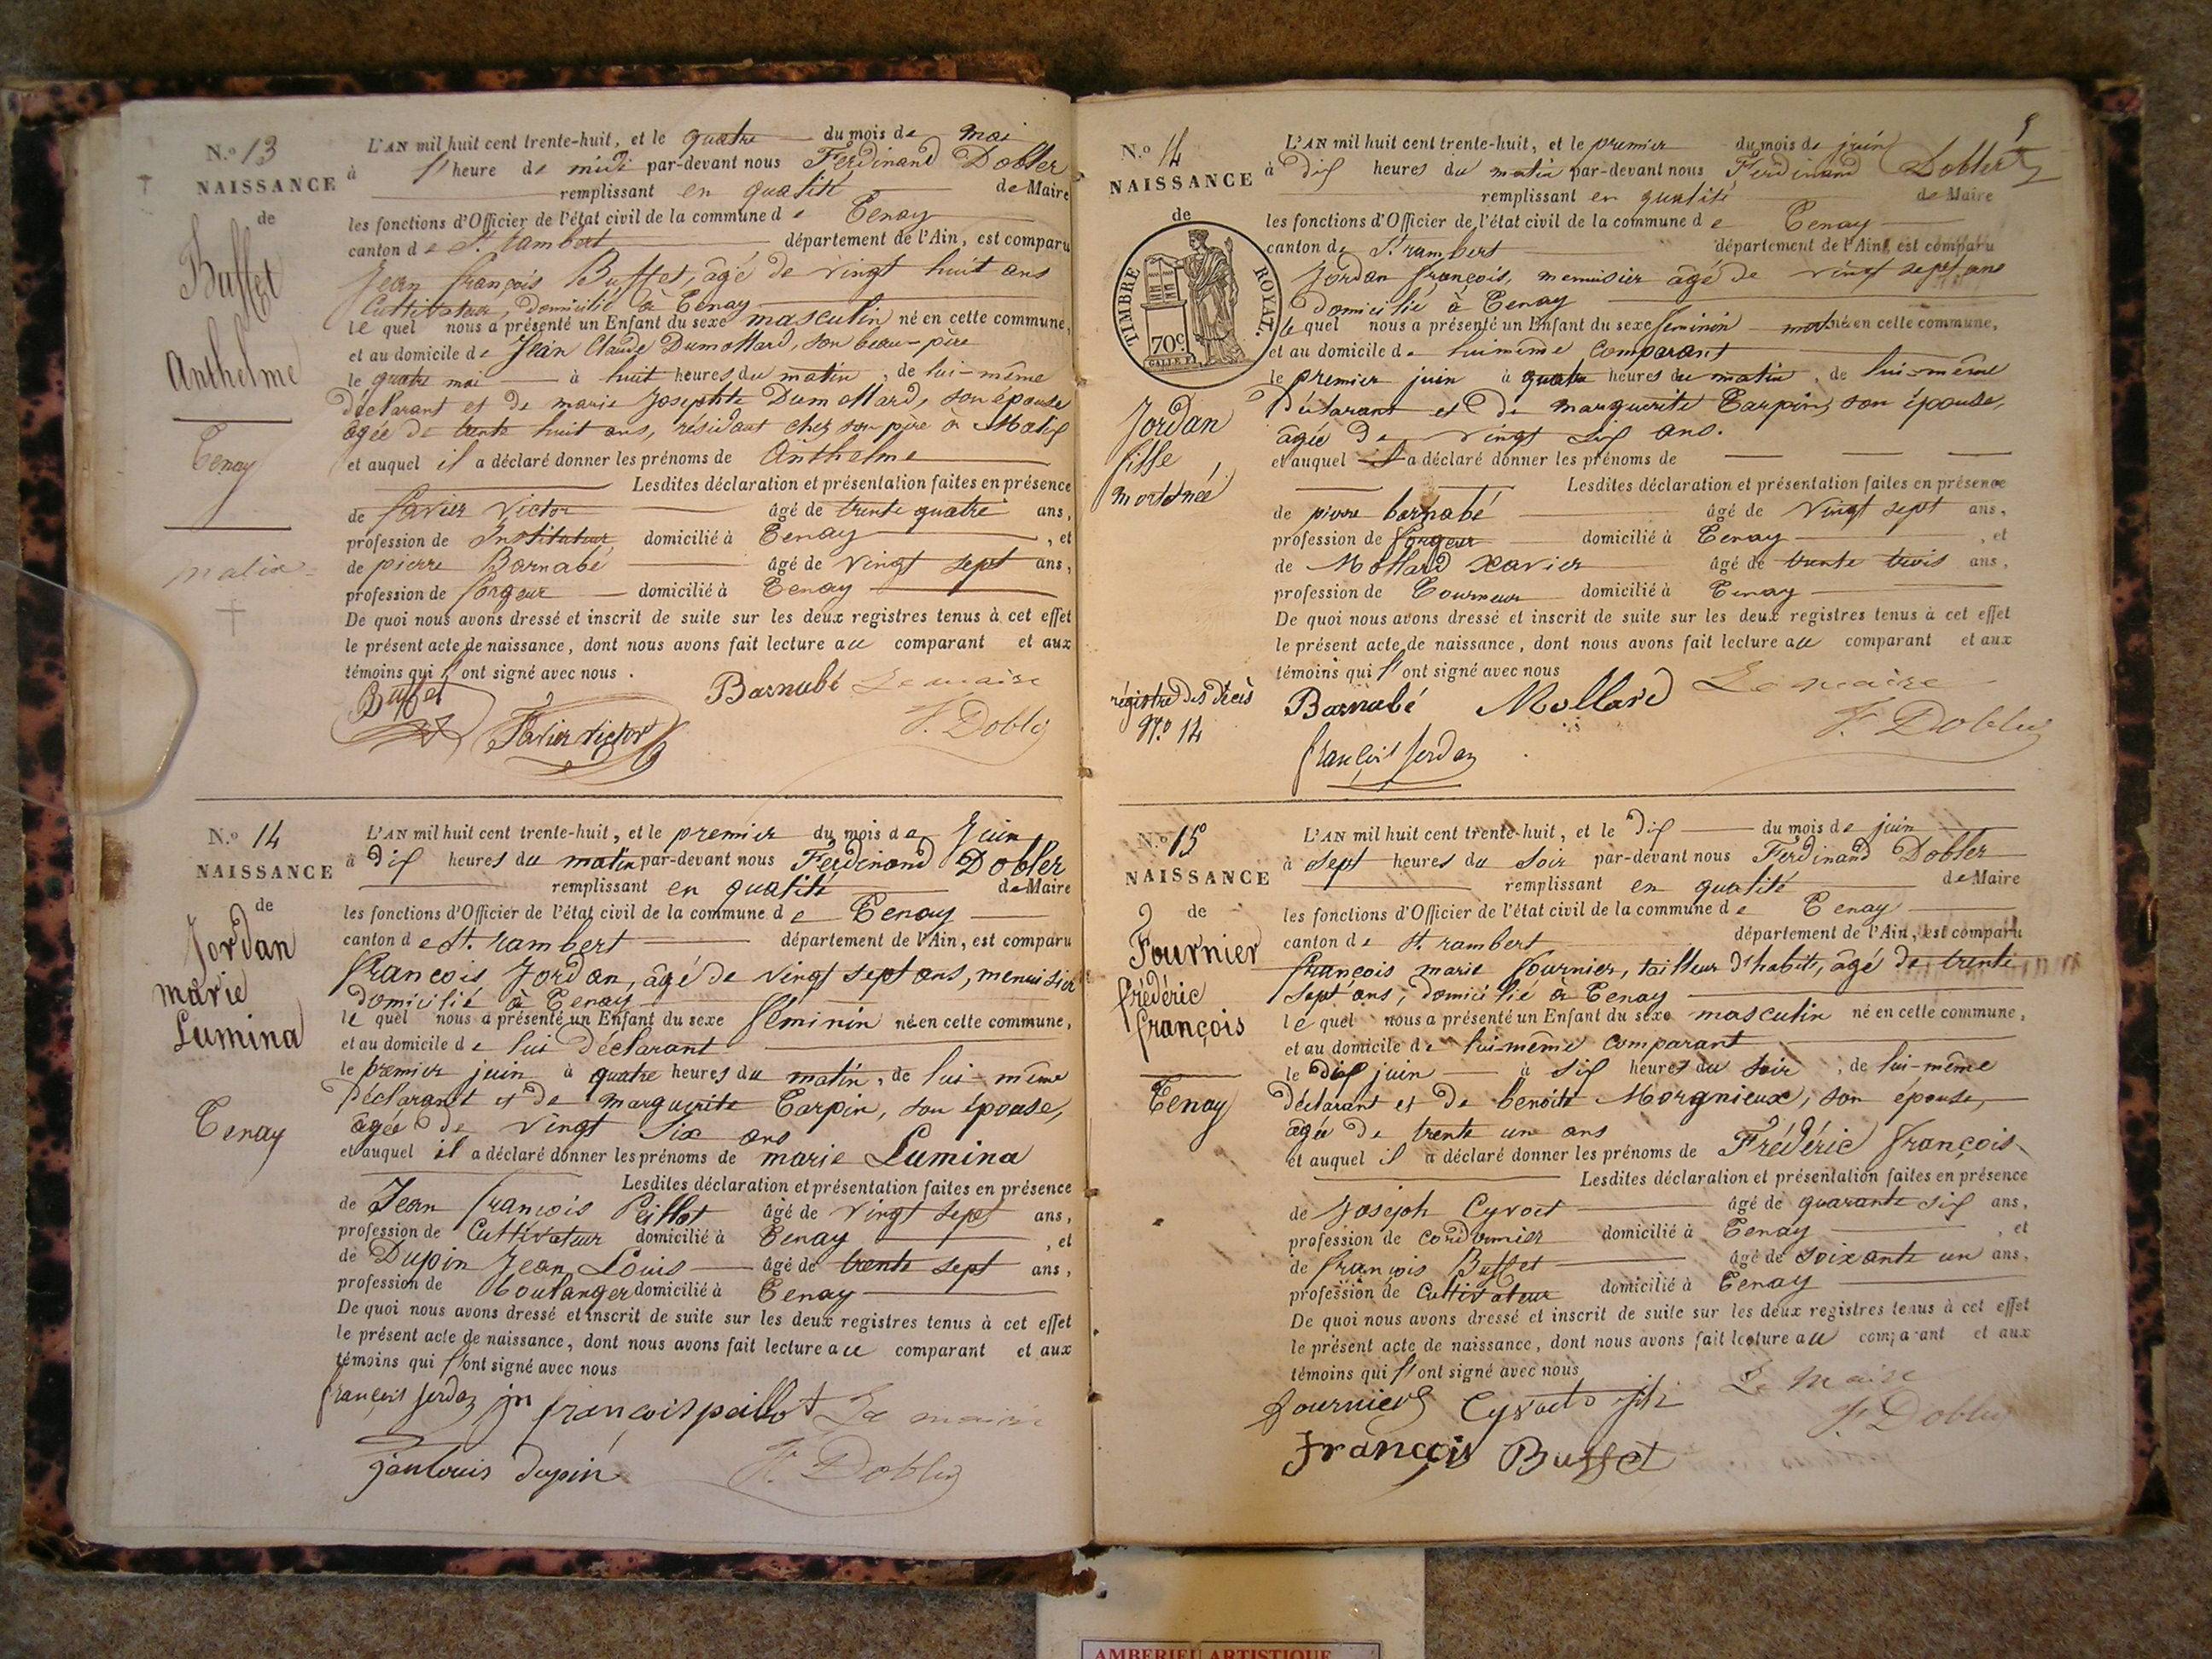 N.o 13
NAISSANCE
de
Buffet
Anthelme
Tenay
L'AN mil huit cent trente-huit, et le quatre du mois de mai
à l'heure de midi par-devant nous Ferdinand Dobler
remplissant en qualité de Maire
les fonctions d'Officier de l'état civil de la commune de Tenay
canton de St. rambert département de l'Ain, est comparu
Jean françois Buffet, âgé de vingt huit ans
Cultivateur, domicilié à Tenay
le quel nous a présenté un Enfant du sexe masculin né en cette commune,
et au domicile de Jean Claude Dumollard, son beau-père
le quatre mai à huit heures du matin, de lui-même
déclarant et de marie Josephte Dumollard, son épouse
âgée de trente huit ans, résidant chez son père à
et auquel il a déclaré donner les prénoms de Anthelme
Lesdites déclaration et présentation faites en présence
de favier Victor âgé de trente quatre ans,
profession de Instituteur domicilié à Tenay, et
de pierre Barnabé âgé de vingt sept ans,
profession de forgeur domicilié à Tenay
De quoi nous avons dressé et inscrit de suite sur les deux registres tenus à cet effet
le présent acte de naissance, dont nous avons fait lecture au comparant et aux
témoins qui l'ont signé avec nous.
Buffet Barnabé Le maire
Favier victor F. Dobler
N.o 14
NAISSANCE
de
Jordan
marie
Lumina
Tenay
L'AN mil huit cent trente-huit, et le premier du mois de Juin
à dix heures du matin par-devant nous Ferdinand Dobler
remplissant en qualité de Maire
les fonctions d'Officier de l'état civil de la commune de Tenay
canton de St. rambert département de l'Ain, est comparu
françois Jordan, âgé de vingt sept ans, menuisier
domicilié à Tenay
le quel nous a présenté un Enfant du sexe féminin né en cette commune,
et au domicile de lui déclarant
le premier juin à quatre heures du matin, de lui-même
déclarant et de marguerite Carpin, son épouse,
âgée de vingt six ans
et auquel il a déclaré donner les prénoms de marie Lumina
Lesdites déclaration et présentation faites en présence
de Jean françois Peillot âgé de vingt sept ans,
profession de Cultivateur domicilié à Tenay, et
de Dupin Jean Louis âgé de trente sept ans,
profession de boulanger domicilié à Tenay
De quoi nous avons dressé et inscrit de suite sur les deux registres tenus à cet effet
le présent acte de naissance, dont nous avons fait lecture au comparant et aux
témoins qui l'ont signé avec nous
françois Jordan jn françois peillot Le maire
janlouis dupin F. Dobler
N.o 14
NAISSANCE
de
TIMBRE ROYAL.
70c
Jordan
fille
mort-née
régistre des décès
N.o 14
L'AN mil huit cent trente-huit, et le premier du mois de juin
à dix heures du matin par-devant nous Ferdinand Dobler
remplissant en qualité de Maire
les fonctions d'Officier de l'état civil de la commune de Tenay
canton de St. rambert département de l'Ain, est comparu
Jordan françois, menuisier âgé de vingt sept ans
domicilié à Tenay
le quel nous a présenté un Enfant du sexe féminin mort né en cette commune,
et au domicile de lui même comparant
le premier juin à quatre heures du matin, de lui-même
déclarant et de marguerite Carpin, son épouse,
âgée de vingt six ans.
et auquel il a déclaré donner les prénoms de
Lesdites déclaration et présentation faites en présence
de pierre barnabé âgé de vingt sept ans,
profession de forgeur domicilié à Tenay, et
de Mollard Xavier âgé de trente trois ans,
profession de Tourneur domicilié à Tenay
De quoi nous avons dressé et inscrit de suite sur les deux registres tenus à cet effet
le présent acte de naissance, dont nous avons fait lecture au comparant et aux
témoins qui l'ont signé avec nous
Barnabé Mollard Le maire
françois Jordan F. Dobler
N.o 15
NAISSANCE
de
Fournier
frédéric
françois
Tenay
L'AN mil huit cent trente-huit, et le dix du mois de juin
à sept heures du soir par-devant nous Ferdinand Dobler
remplissant en qualité de Maire
les fonctions d'Officier de l'état civil de la commune de Tenay
canton de St. rambert département de l'Ain, est comparu
françois marie fournier, tailleur d'habits, âgé de trente
sept ans, domicilié à Tenay
le quel nous a présenté un Enfant du sexe masculin né en cette commune,
et au domicile de lui-même comparant
le dix juin à six heures du soir, de lui-même
déclarant et de benoite Morgnieux, son épouse,
âgée de trente un ans
et auquel il a déclaré donner les prénoms de Frédéric françois
Lesdites déclaration et présentation faites en présence
de Joseph Cyvoct âgé de quarante six ans,
profession de cordonnier domicilié à Tenay, et
de françois Buffet âgé de soixante un ans,
profession de Cultivateur domicilié à Tenay
De quoi nous avons dressé et inscrit de suite sur les deux registres tenus à cet effet
le présent acte de naissance, dont nous avons fait lecture au comparant et aux
témoins qui l'ont signé avec nous
fournier Cyvoct Le Maire
François Buffet F. Dobler
AMBERIEU ARTISTIQUE